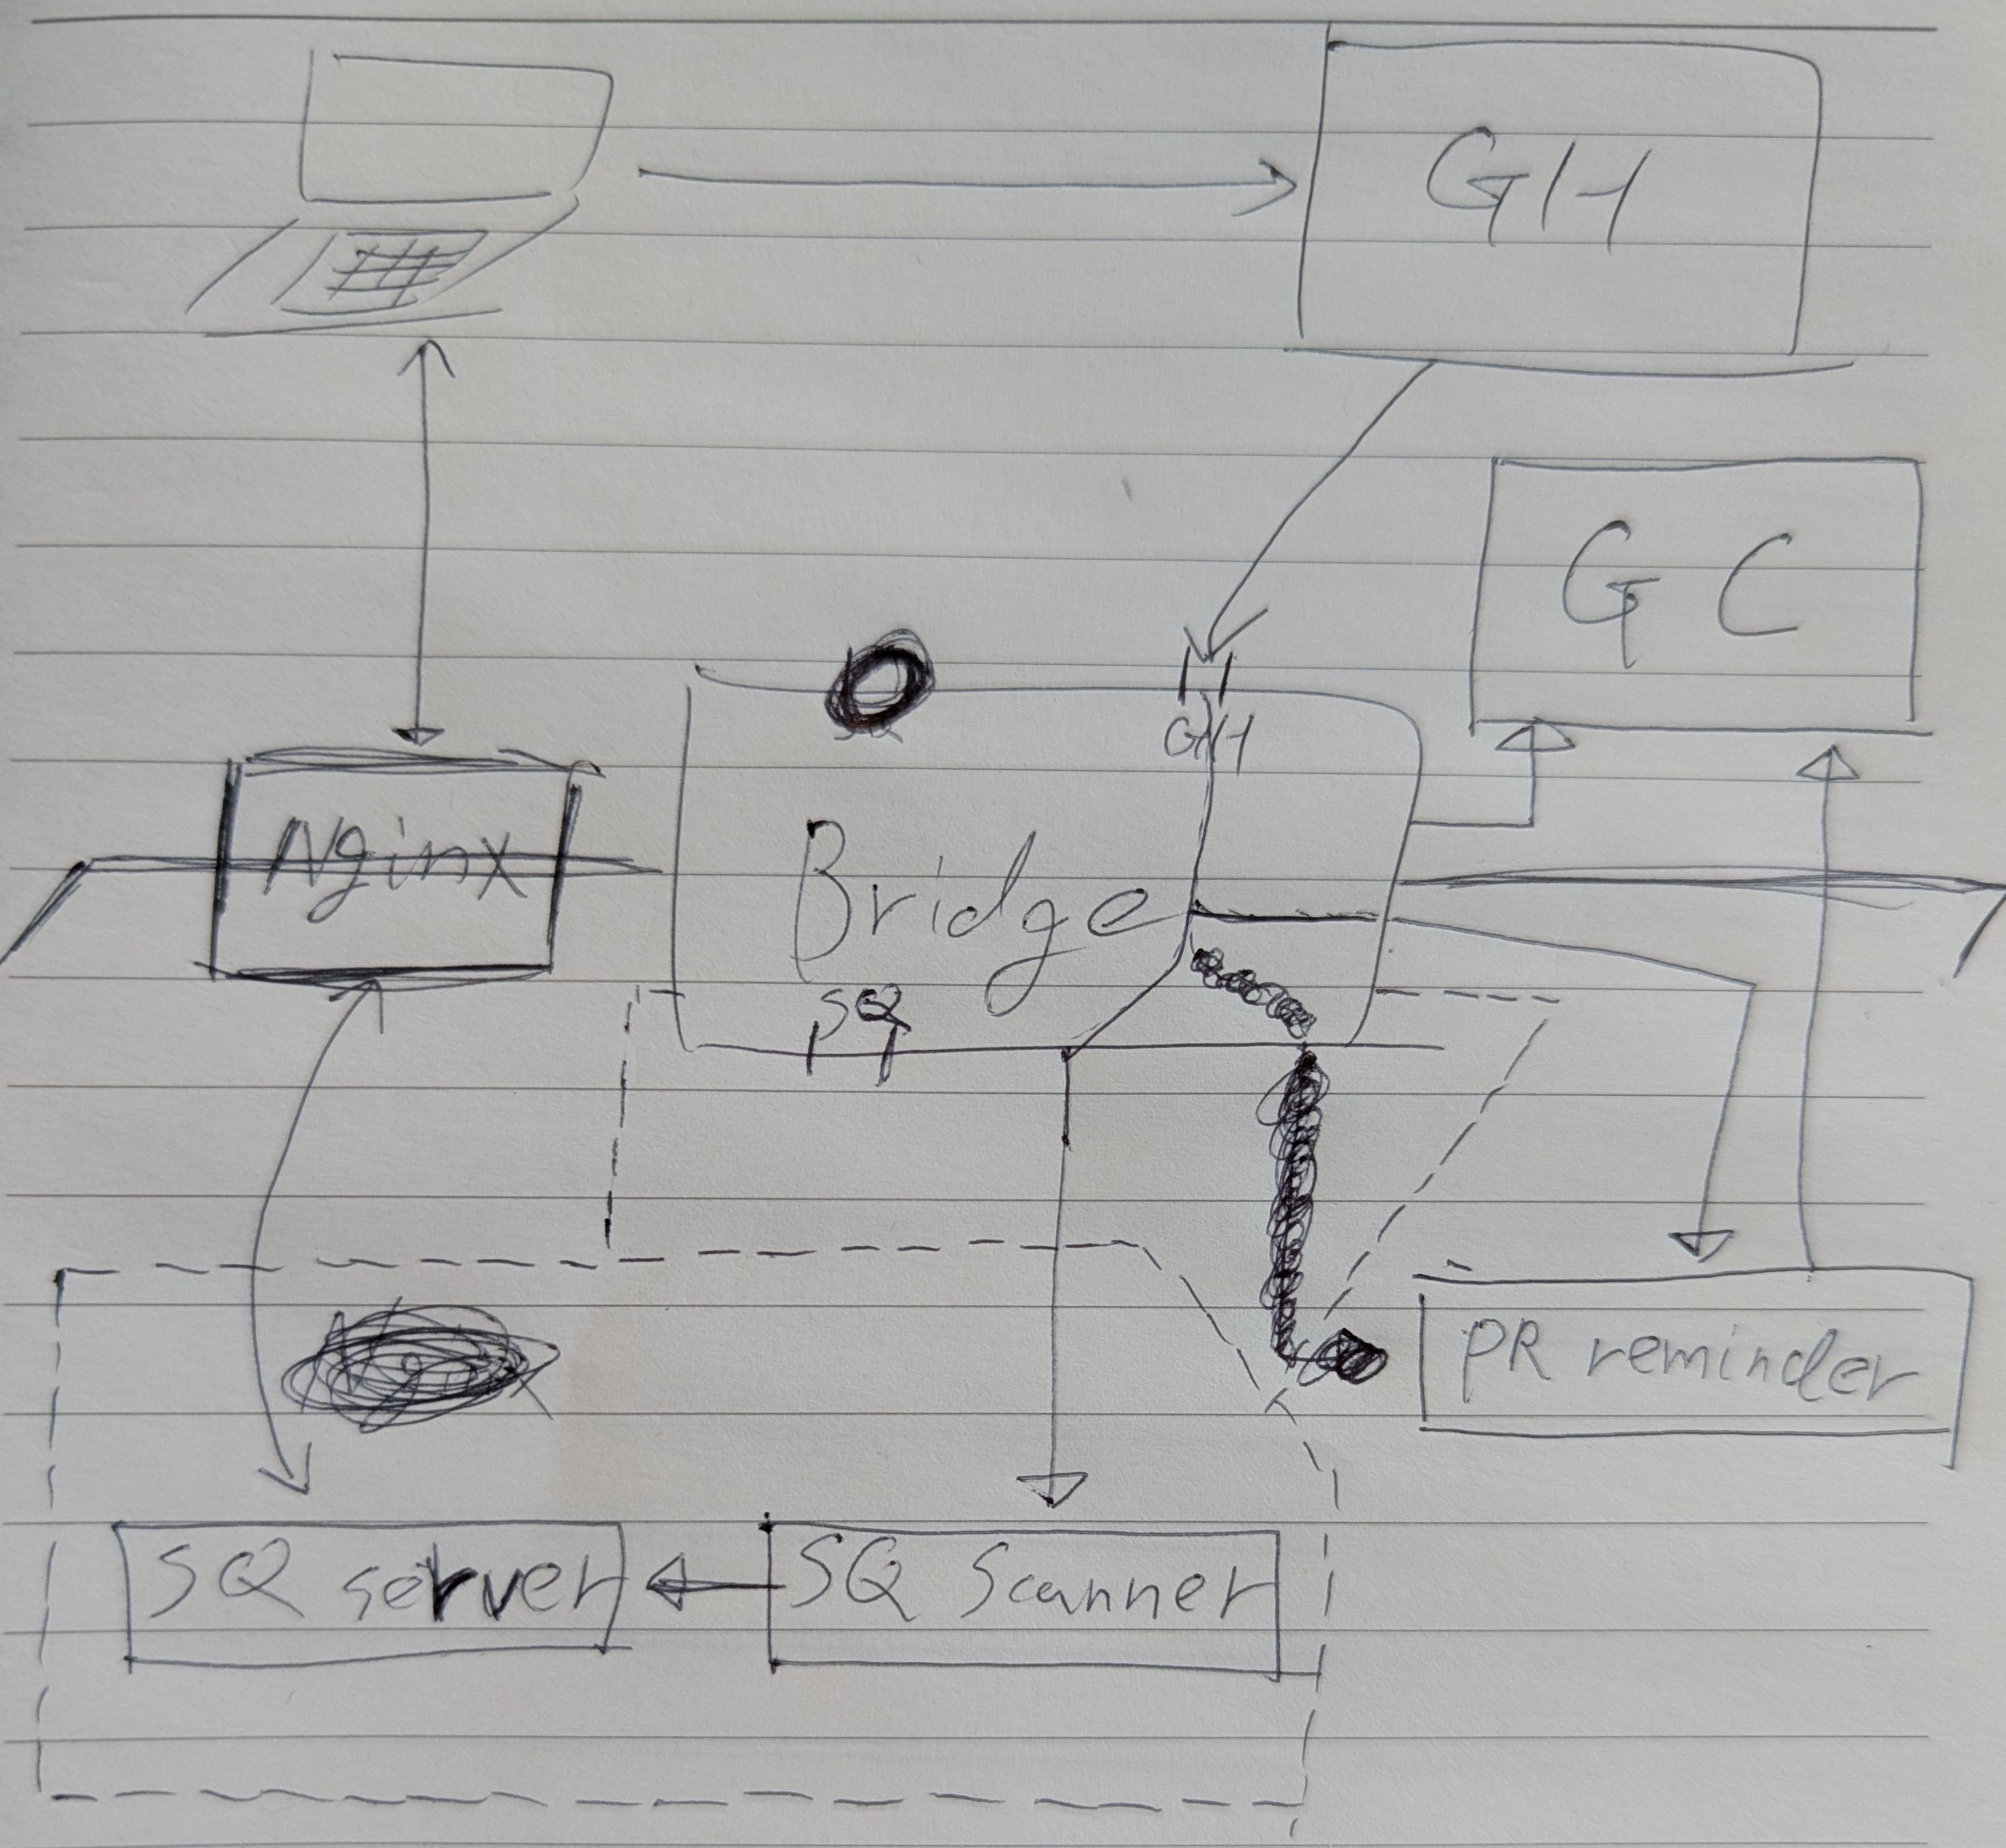 GH
GC
GH
Nginx
Bridge
SQ
PR reminder
SQ server
SQ Scanner